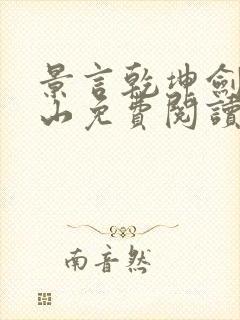 景言乾坤劍
山免費閱讀
南音然